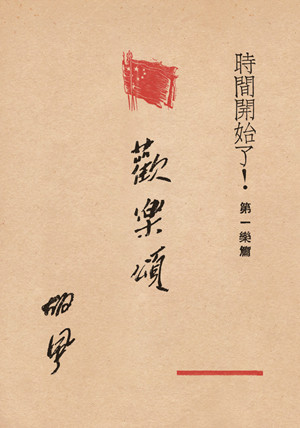 時間開始了！
第一樂篇
歡樂頌
胡風